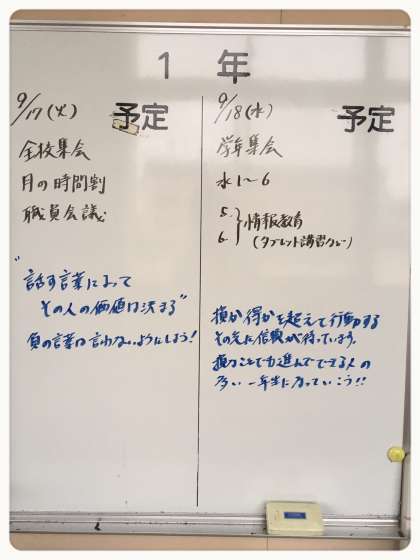 1 年
9/17(火) 予定
全校集会
月の時間割
職員会議
"話す言葉によって
その人の価値は決まる"
負の言葉は言わないようにしよう!
9/18(水) 予定
学年集会
水1〜6
5. 6. }情報教育
(タブレット講習など)
損か得かを超えて行動する
その先に信頼が待っています。
損なことでも進んでできる人の
多い一年生になっていこう!!